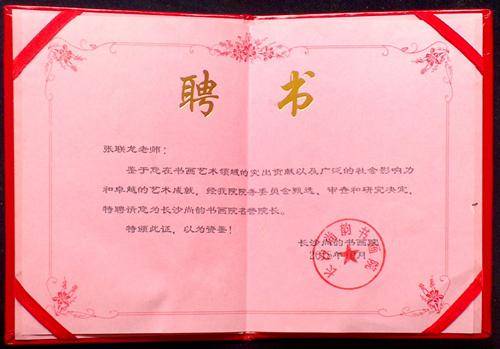 聘 书
张联龙老师：
鉴于您在书画艺术领域的突出贡献以及广泛的社会影响力
和卓越的艺术成就，经我院院务委员会甄选、审查和研究决定，
特聘请您为长沙尚韵书画院名誉院长。
特颁此证，以为资鉴！
长沙尚韵书画院
年 月
长沙尚韵书画院